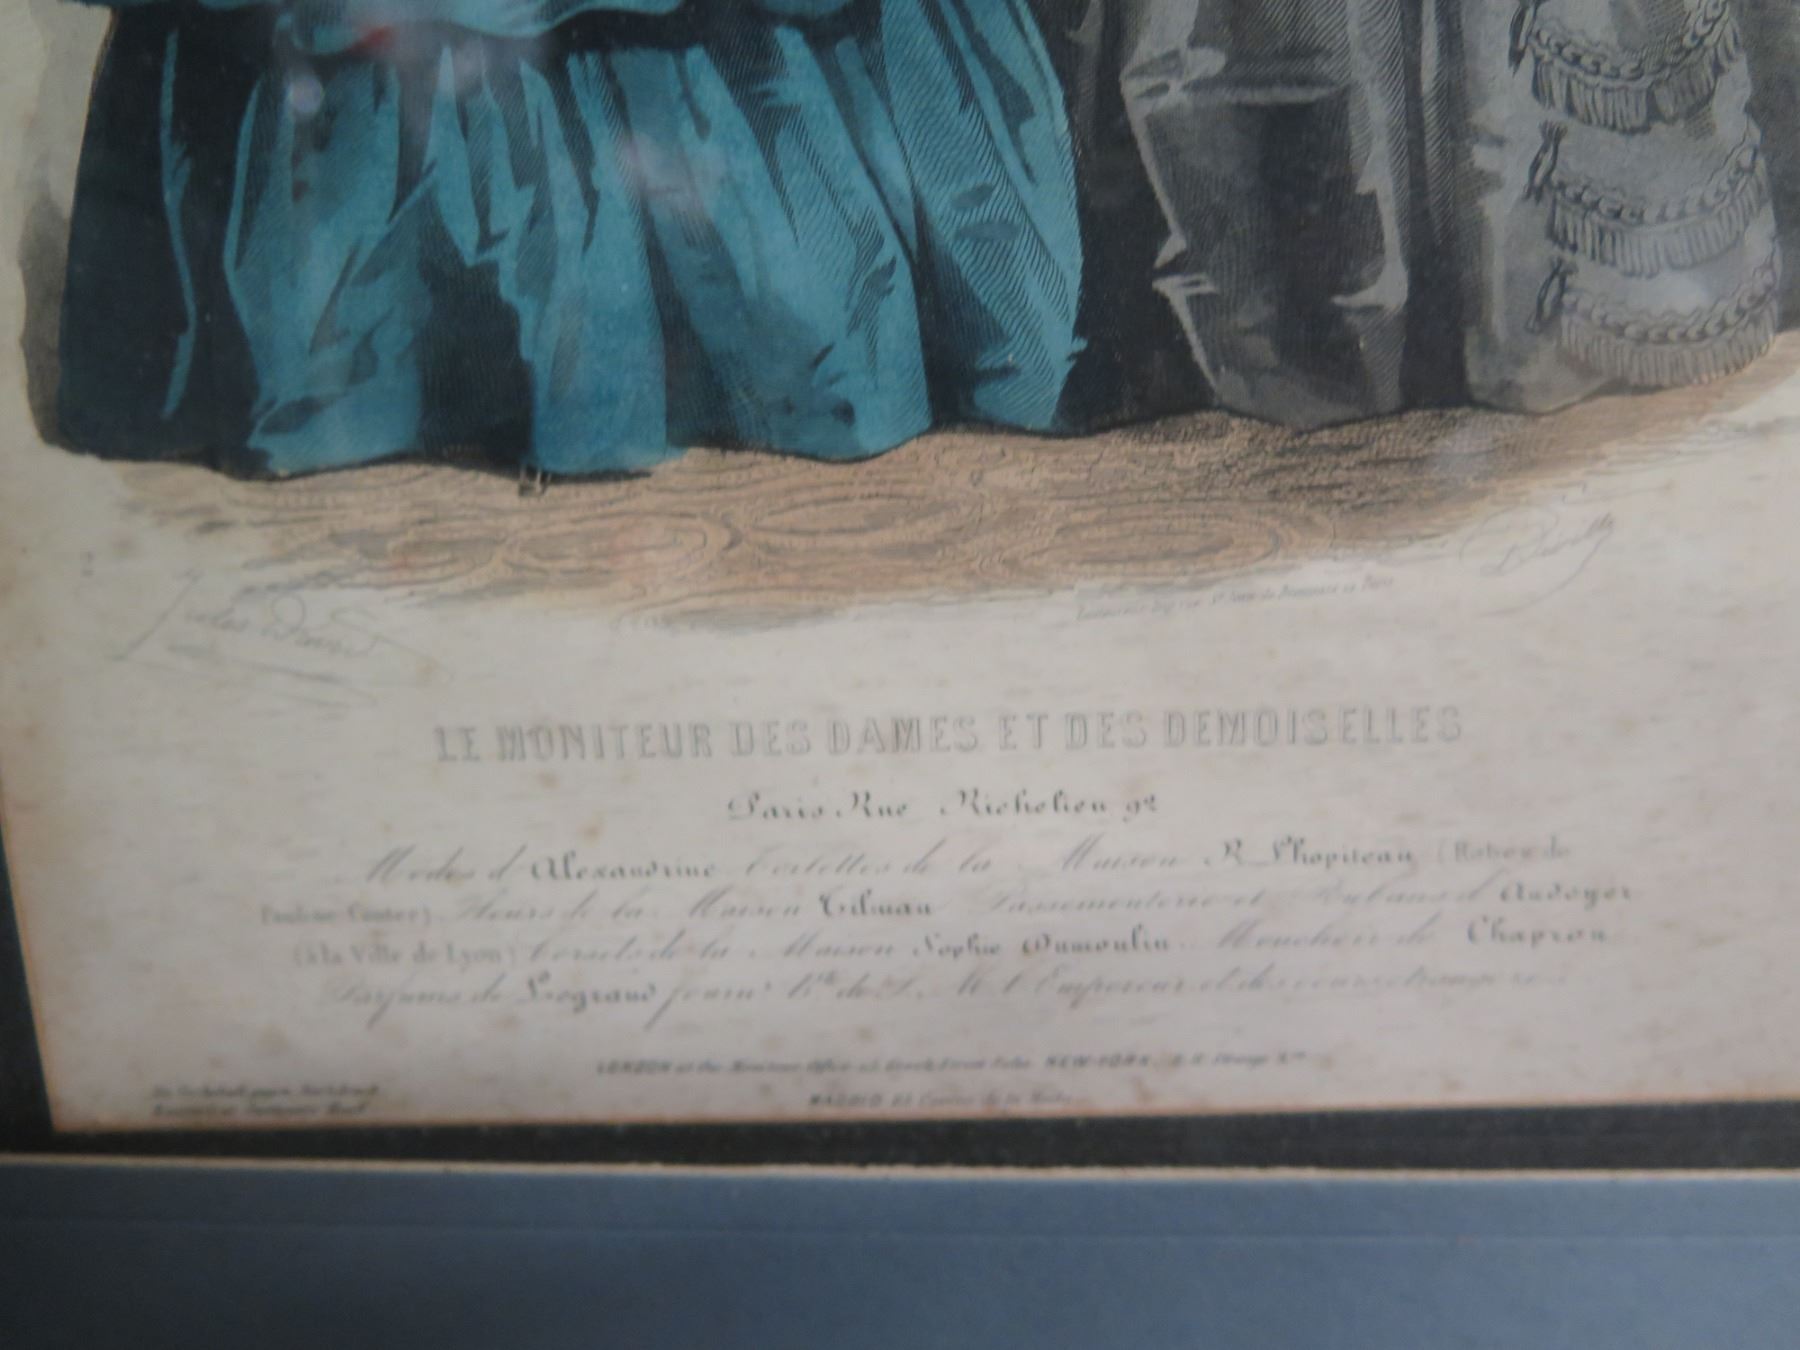 Jules David
Rue St Jean de Beauvais 10 Paris
LE MONITEUR DES DAMES ET DES DEMOISELLES
Paris Rue Richelieu 92
Modes d'Alexandrine Toilettes de la Maison R. Lhopiteau (Robes de
Pauline Conter) Fleurs de la Maison Tilman Passementerie et Rubans d'Ansoyer
(à la Ville de Lyon) Corsets de la Maison Sophie Dumoulin Mouchoir de Chapron
Parfums de Legrand fourn.r b.té de S. M. l'Empereur et des cours étrangères
LONDON at the Moniteur Office NEW-YORK
MADRID